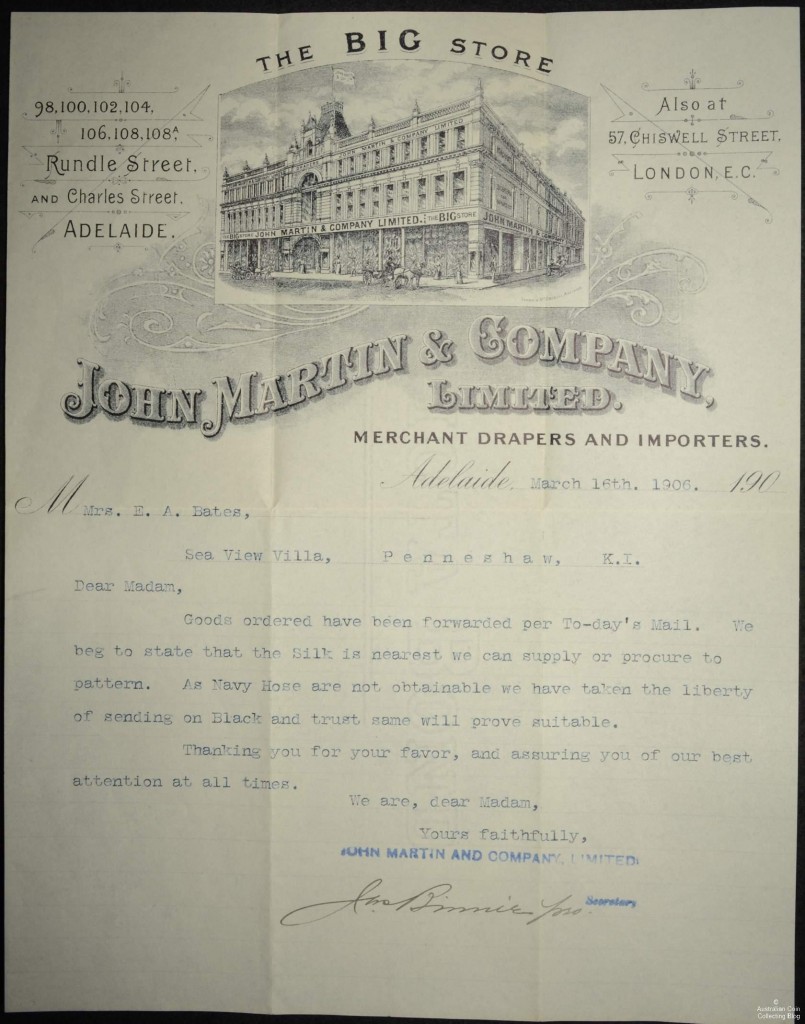 THE BIG STORE
98,100,102,104,
106,108,108A,
Rundle Street,
AND Charles Street,
ADELAIDE.
Also at
57, CHISWELL STREET,
LONDON, E.C.
MARTIN & COMPANY LIMITED
THE BIG STORE JOHN MARTIN & COMPANY LIMITED. THE BIG STORE JOHN MARTIN &
JOHN MARTIN & COMPANY,
LIMITED.
MERCHANT DRAPERS AND IMPORTERS.
Adelaide, March 16th. 1906. 190
M Mrs. E. A. Bates,
Sea View Villa, Penneshaw, K.I.
Dear Madam,
Goods ordered have been forwarded per To-day's Mail. We
beg to state that the Silk is nearest we can supply or procure to
pattern. As Navy Hose are not obtainable we have taken the liberty
of sending on Black and trust same will prove suitable.
Thanking you for your favor, and assuring you of our best
attention at all times.
We are, dear Madam,
Yours faithfully,
JOHN MARTIN AND COMPANY, LIMITED
Jas Binnie pro. Secretary
©
Australian Coin
Collecting Blog